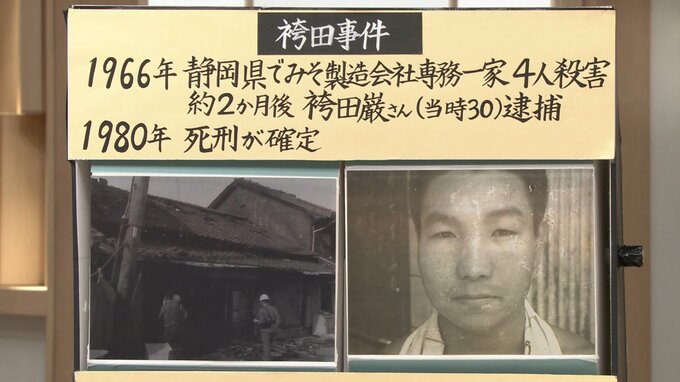 袴田事件
1966年 静岡県でみそ製造会社専務一家4人殺害
約2か月後 袴田巌さん(当時30)逮捕
1980年 死刑が確定